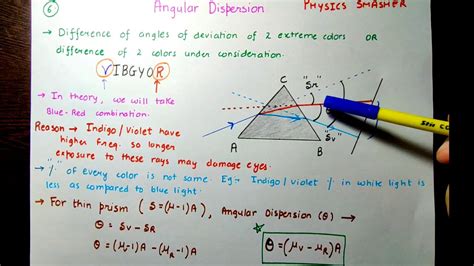 6 Angular Dispersion PHYSICS SMASHER
→ Difference of angles of deviation of 2 extreme colors OR
difference of 2 colors under consideration.
VIBGYOR
→ In theory, we will take
Blue-Red combination.
Reason → Indigo/Violet have
higher freq. so longer
exposure to these rays may damage eyes.
→ "%" of every color is not same. Eg:- Indigo/violet % in white light is
less as compared to blue light.
→ For thin prism (δ = (μ-1)A), Angular Dispersion (θ) →
θ = δv - δR
θ = (μv-1)A - (μR-1)A
θ = (μv - μR)A
C
"δr"
"δv"
A
B